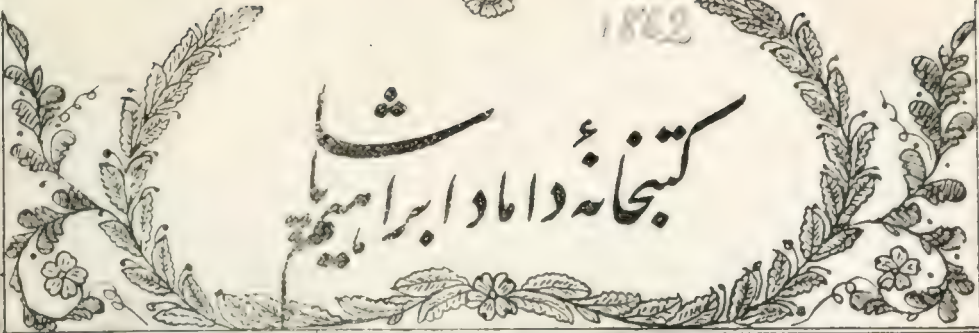 1862
كتبخانهٔ داماد ابراهيم پاشا